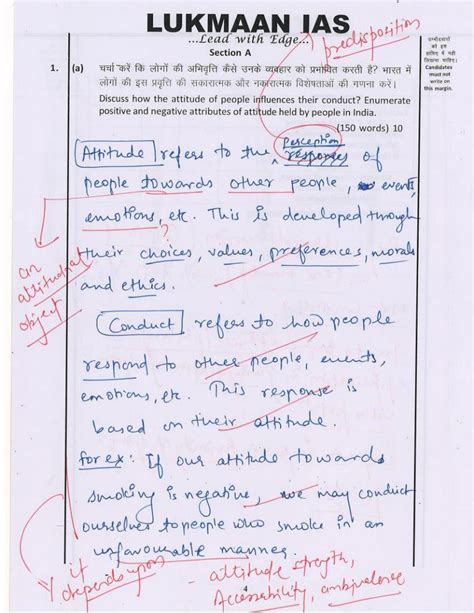 LUKMAAN IAS
...Lead with Edge...
predisposition
Section A
उम्मीदवारों को इस हाशिए में नहीं लिखना चाहिए।
Candidates must not write on this margin.
1. (a) चर्चा करें कि लोगों की अभिवृत्ति कैसे उनके व्यवहार को प्रभावित करती है? भारत में
लोगों की इस प्रवृत्ति की सकारात्मक और नकारात्मक विशेषताओं की गणना करें।
Discuss how the attitude of people influences their conduct? Enumerate
positive and negative attributes of attitude held by people in India.
(150 words) 10
Perception
Attitude refers to the response of
people towards other people, events,
emotions, etc. This is developed through
?
their choices, values, preferences, morals
and ethics.
an
attitudinal
object
Conduct refers to how people
respond to other people, events,
emotions, etc. This response is
based on their attitude.
for ex: If our attitude towards
smoking is negative, we may conduct
ourselves to people who smoke in an
unfavourable manner.
it
depends upon
- attitude strength,
Accessability, ambivalence
4